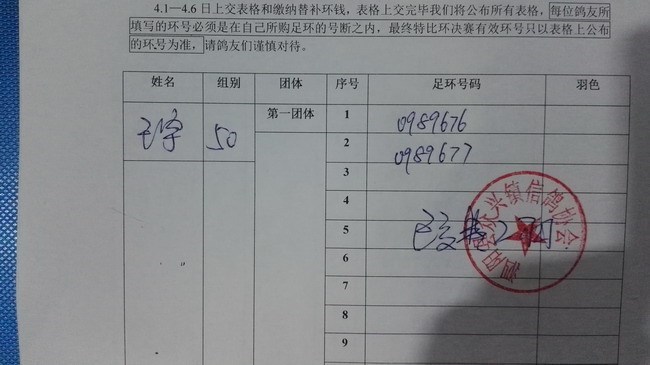 4.1—4.6 日上交表格和缴纳替补环钱，表格上交完毕我们将公布所有表格，每位鸽友所
填写的环号必须是在自己所购足环的号断之内，最终特比环决赛有效环号只以表格上公布
的环号为准，请鸽友们谨慎对待。
姓名 组别 团体 序号 足环号码 羽色
王宇 50 第一团体 1 0989676
2 0989677
3
4
5
6
7
8
9
泗阳县众兴镇信鸽协会